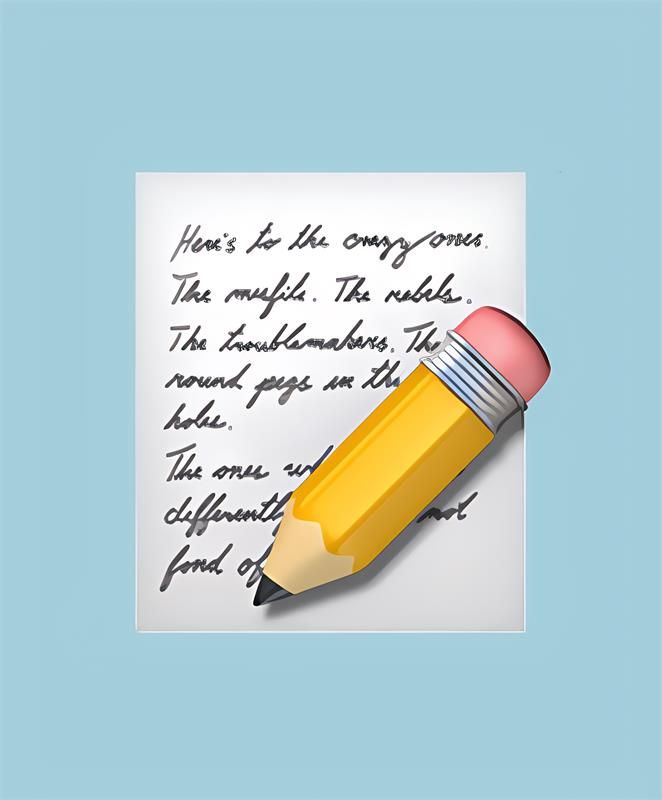 Here's to the crazy ones.
The misfits. The rebels.
The troublemakers. The
round pegs in the
holes.
The ones
differently not
fond of